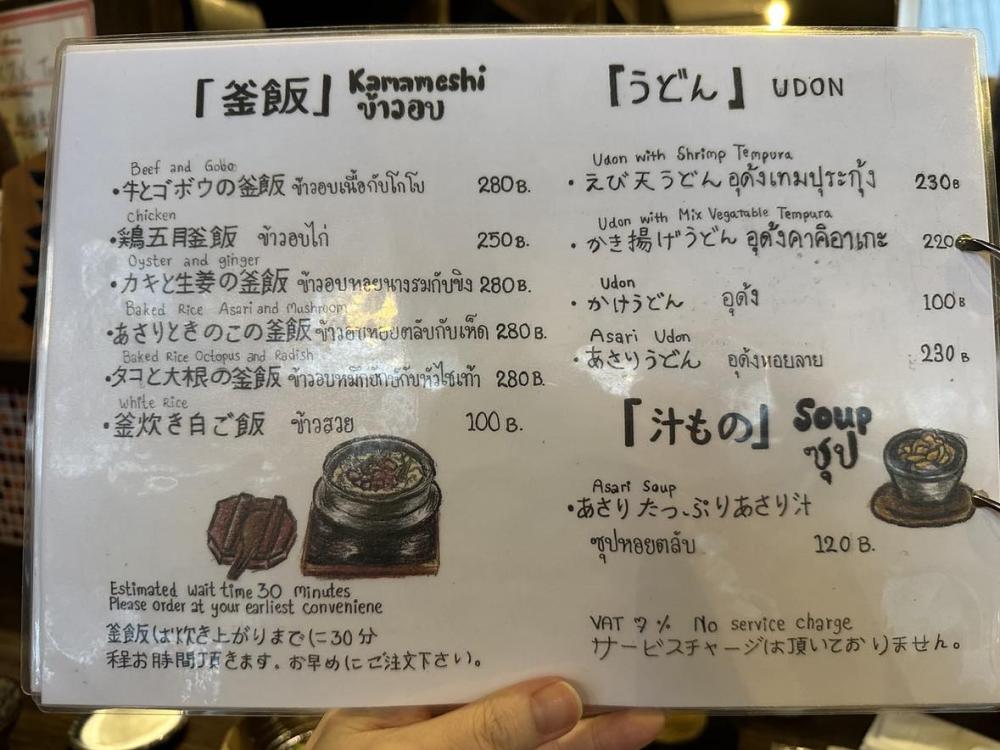 「釜飯」 Kamameshi
ข้าวอบ
Beef and Gobo
・牛とゴボウの釜飯 ข้าวอบเนื้อกับโกโบ 280 B.
Chicken
・鶏五目釜飯 ข้าวอบไก่ 250 B.
Oyster and ginger
・カキと生姜の釜飯 ข้าวอบหอยนางรมกับขิง 280 B.
Baked Rice Asari and Mushroom
・あさりときのこの釜飯 ข้าวอบหอยตลับกับเห็ด 280 B.
Baked Rice Octopus and Radish
・タコと大根の釜飯 ข้าวอบหมึกยักษ์กับหัวไชเท้า 280 B.
White Rice
・釜炊き白ご飯 ข้าวสวย 100 B.
Estimated wait time 30 Minutes
Please order at your earliest conveniene
釜飯は炊き上がりまでに30分
程お時間頂きます。お早めにご注文下さい。
『うどん』 UDON
Udon with Shrimp Tempura
・えび天うどん อุด้งเทมปุระกุ้ง 230 B
Udon with Mix Vegatable Tempura
・かき揚げうどん อุด้งคาคิอาเกะ 220
Udon
・かけうどん อุด้ง 100 B
Asari Udon
・あさりうどん อุด้งหอยลาย 230 B
「汁もの」 Soup
ซุป
Asari Soup
・あさりたっぷりあさり汁
ซุปหอยตลับ 120 B.
VAT 7 % No service charge
サービスチャージは頂いておりません。